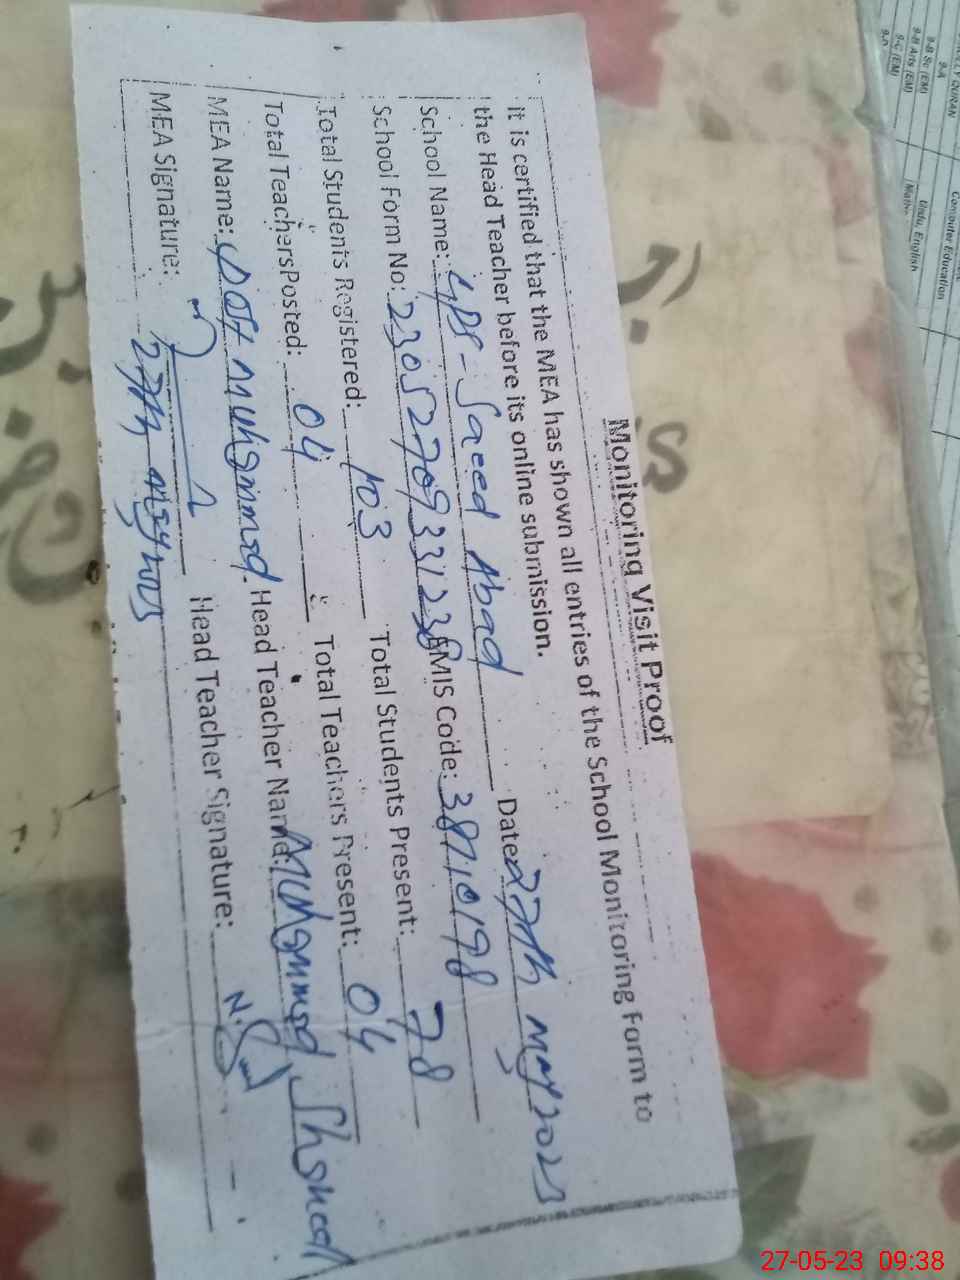 Monitoring Visit Proof
it is certified that the MEA has shown all entries of the School Monitoring Form to
the Head Teacher before its online submission.
School Name: GPS - Saeed Abad Date: 27th may 2023
School Form No: 23052709331238 EMIS Code: 38710198
Total Students Registered: 103 Total Students Present: 78
Total Teachers Posted: 04 Total Teachers Present: 04
MEA Name: Dost Muhammad. Head Teacher Name: Muhammad
MEA Signature: Head Teacher Signature:
27th may 2023
9-A
9-B Sc (EM)
9-B Arts (EM)
9-C (EM)
9-D
QURAN
Computer Education
Urdu, English
27-05-23 09:38